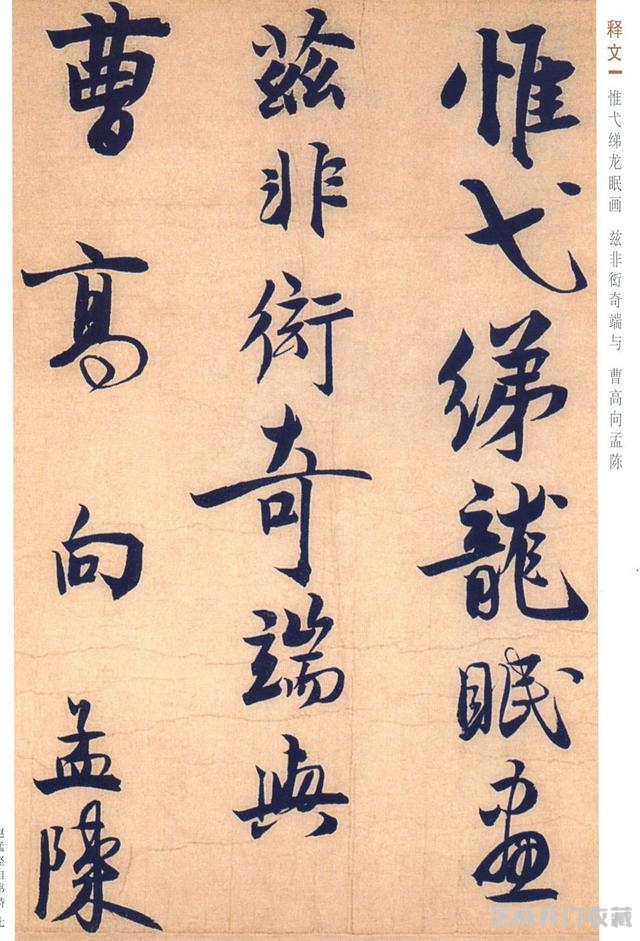 释文
惟弋绨龙眠画 兹非衒奇端与 曹高向孟陈
惟弋綈龍眠畫
茲非衒奇端與
曹高向孟陳
赵孟坚自书诗 七
芝麻开门收藏